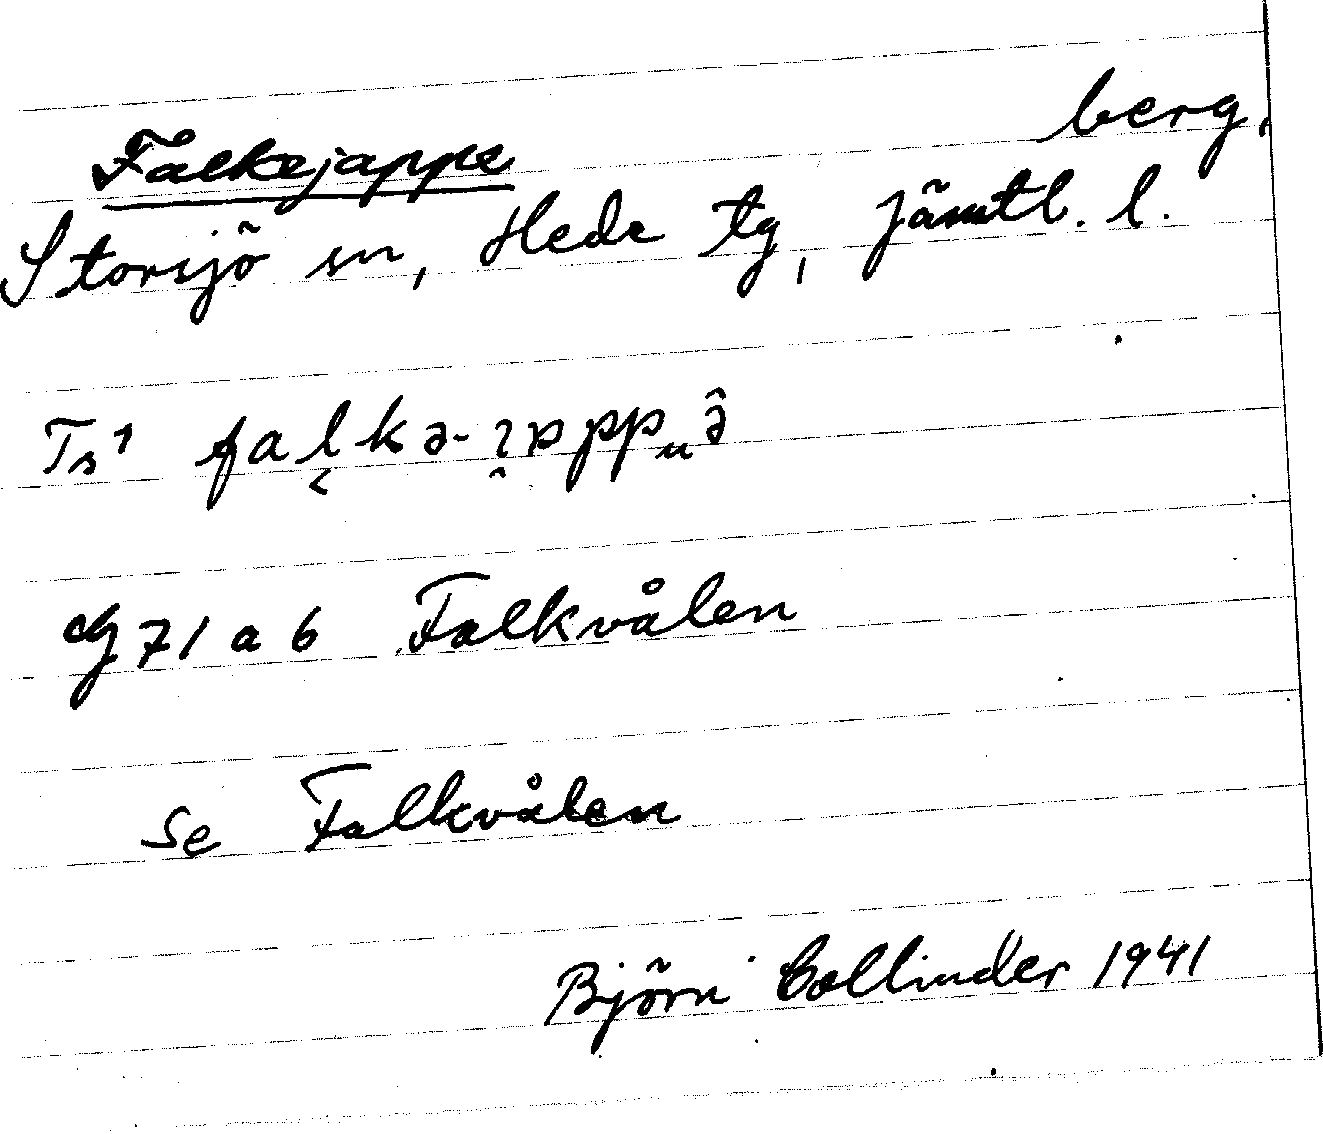 Falkejappe berg,
Storsjö sn, Hede tg, Jämtl. l.
Ts¹
71 a 6 Falkvålen
Se Falkvålen
Björn Collinder 1941